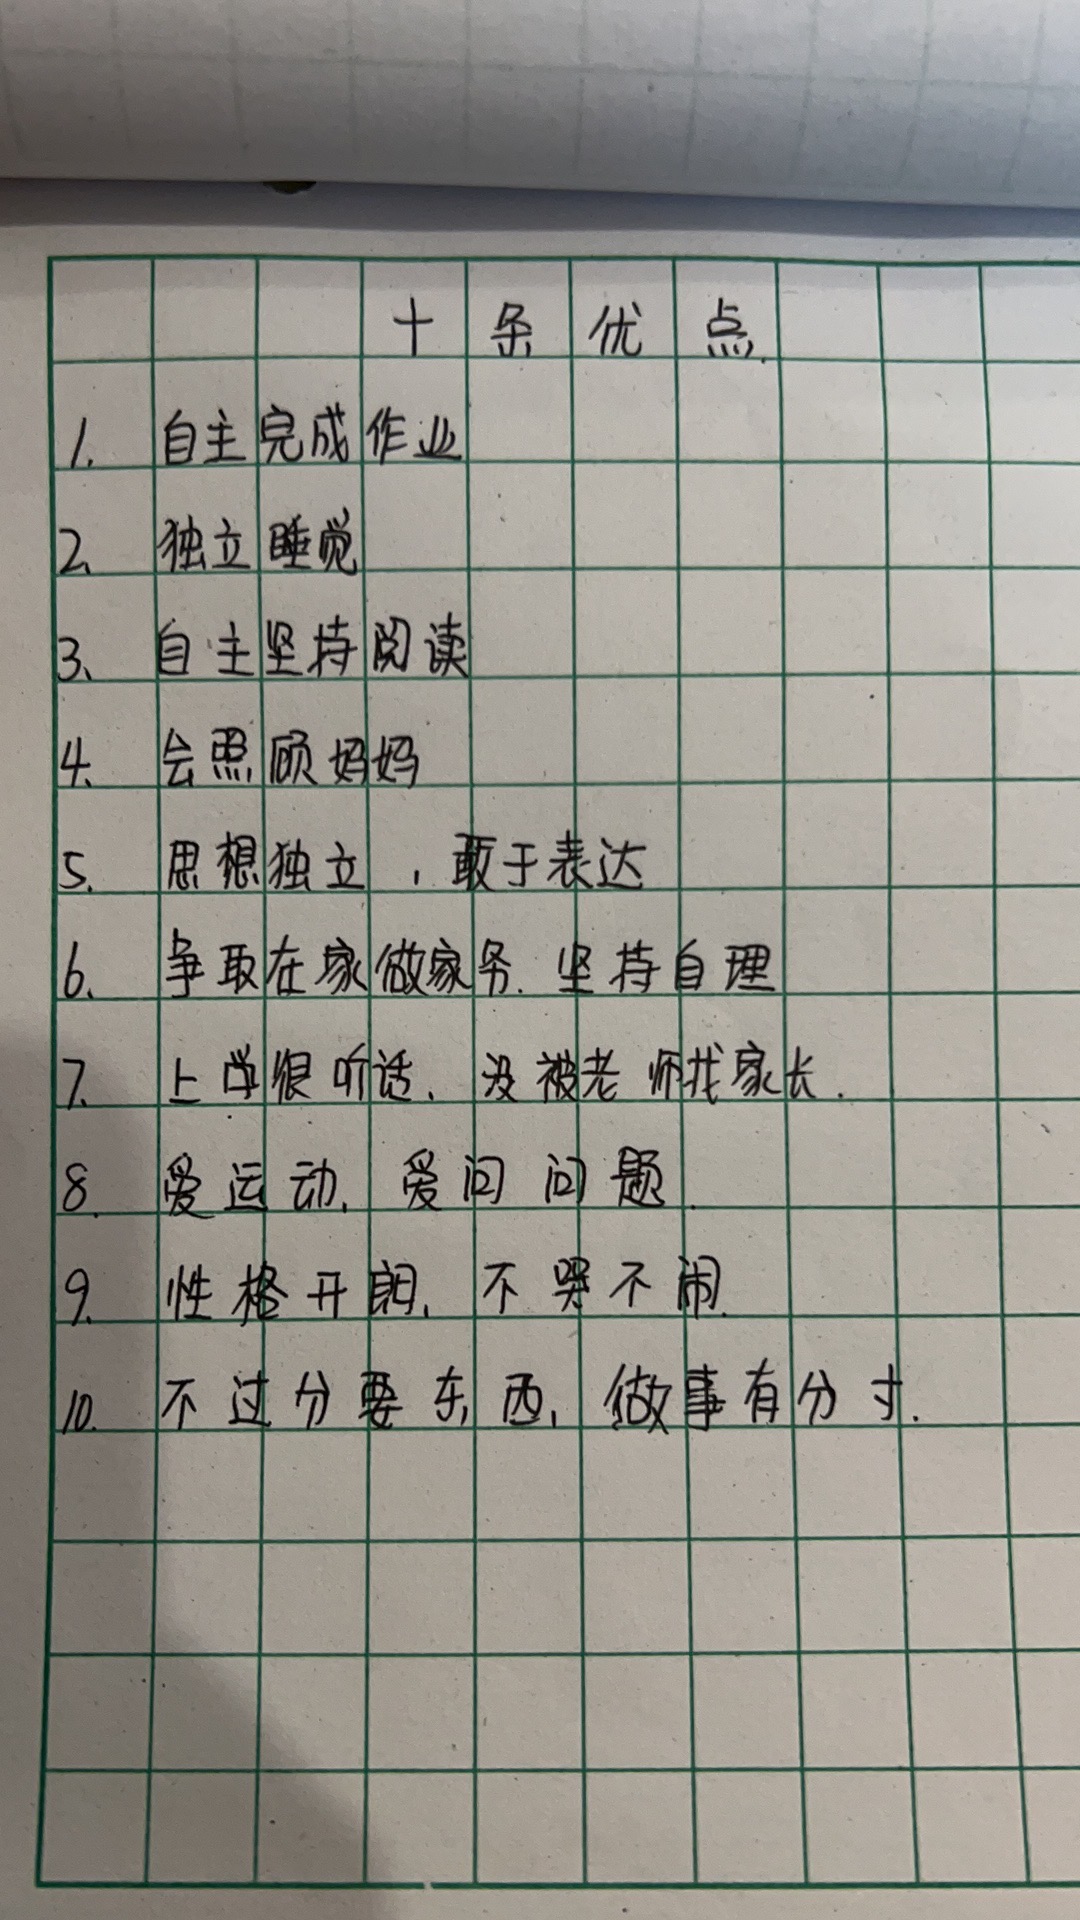 十条优点.
1. 自主完成作业
2. 独立睡觉
3. 自主坚持阅读
4. 会照顾妈妈
5. 思想独立,敢于表达
6. 争取在家做家务.坚持自理
7. 上学很听话,没被老师找家长.
8. 爱运动,爱问问题.
9. 性格开朗,不哭不闹.
10. 不过分要东西,做事有分寸.